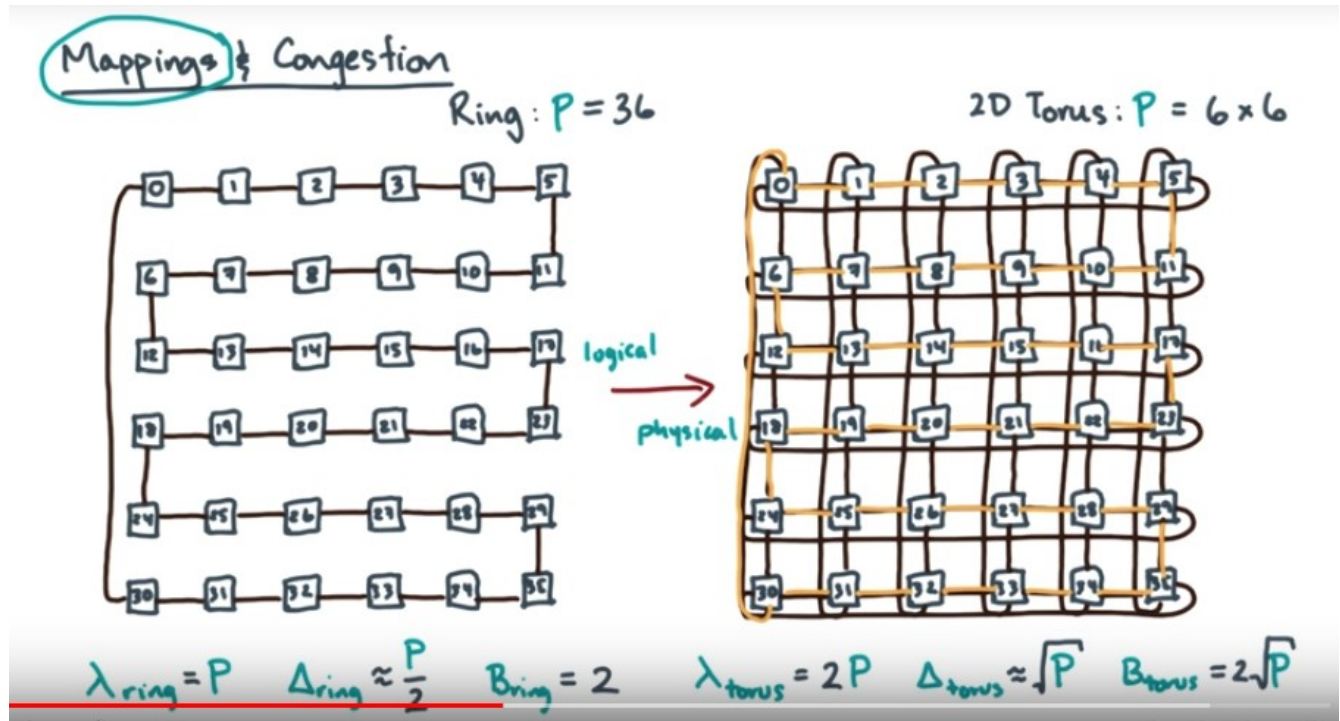 Mappings & Congestion
Ring: P = 36
2D Torus: P = 6 × 6
0 1 2 3 4 5
6 7 8 9 10 11
12 13 14 15 16 17
18 19 20 21 22 23
24 25 26 27 28 29
30 31 32 33 34 35
logical
physical
0 1 2 3 4 5
6 7 8 9 10 11
12 13 14 15 16 17
18 19 20 21 22 23
24 25 26 27 28 29
30 31 32 33 34 35
λring = P Δring ≈ P/2 Bring = 2 λtorus = 2P Δtorus ≈ √P Btorus = 2√P